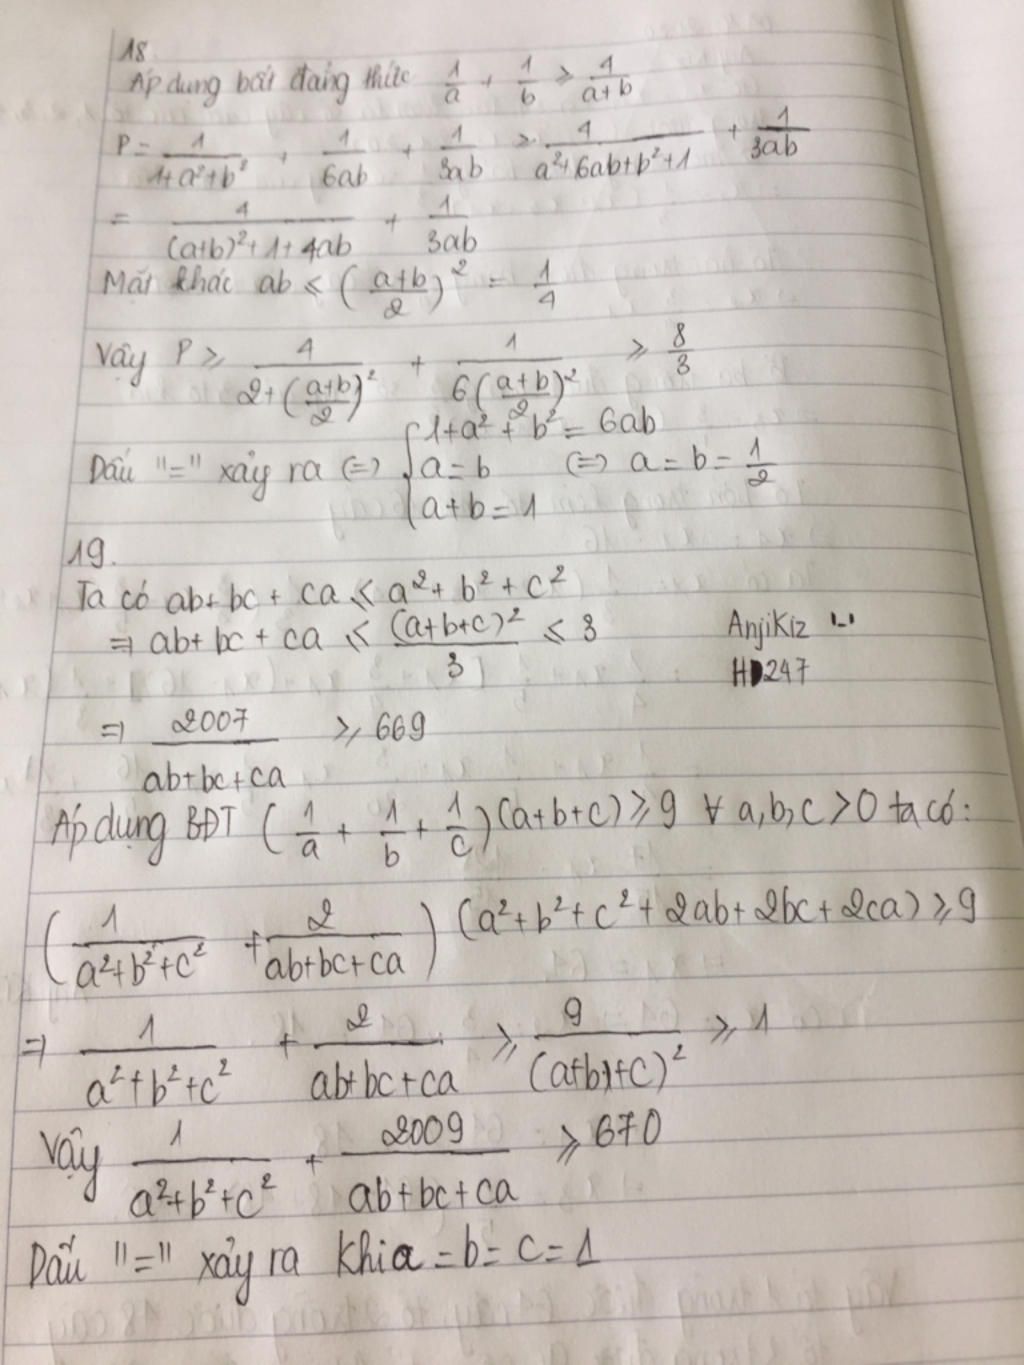 18.
Áp dụng bất đẳng thức 1/a + 1/b ≥ 4/(a+b)
P = 1/(1+a²+b²) + 1/(6ab) + 1/(3ab) ≥ 4/(a²+6ab+b²+1) + 1/(3ab)
= 4/((a+b)²+1+4ab) + 1/(3ab)
Mặt khác ab ≤ ((a+b)/2)² = 1/4
Vậy P ≥ 4/(2+((a+b)/2)²) + 1/(6((a+b)/2)²) ≥ 8/3
Dấu "=" xảy ra (=) { 1+a²+b² = 6ab
a=b (=) a=b=1/2
a+b=1
19.
Ta có ab+bc+ca ≤ a²+b²+c²
⇒ ab+bc+ca ≤ (a+b+c)²/3 ≤ 3
AnjiKiz
HD247
⇒ 2007/(ab+bc+ca) ≥ 669
Áp dụng BĐT (1/a + 1/b + 1/c)(a+b+c) ≥ 9 ∀ a,b,c >0 ta có:
(1/(a²+b²+c²) + 2/(ab+bc+ca)) (a²+b²+c²+2ab+2bc+2ca) ≥ 9
⇒ 1/(a²+b²+c²) + 2/(ab+bc+ca) ≥ 9/(a+b+c)² ≥ 1
Vậy 1/(a²+b²+c²) + 2009/(ab+bc+ca) ≥ 670
Dấu "=" xảy ra khi a=b=c=1